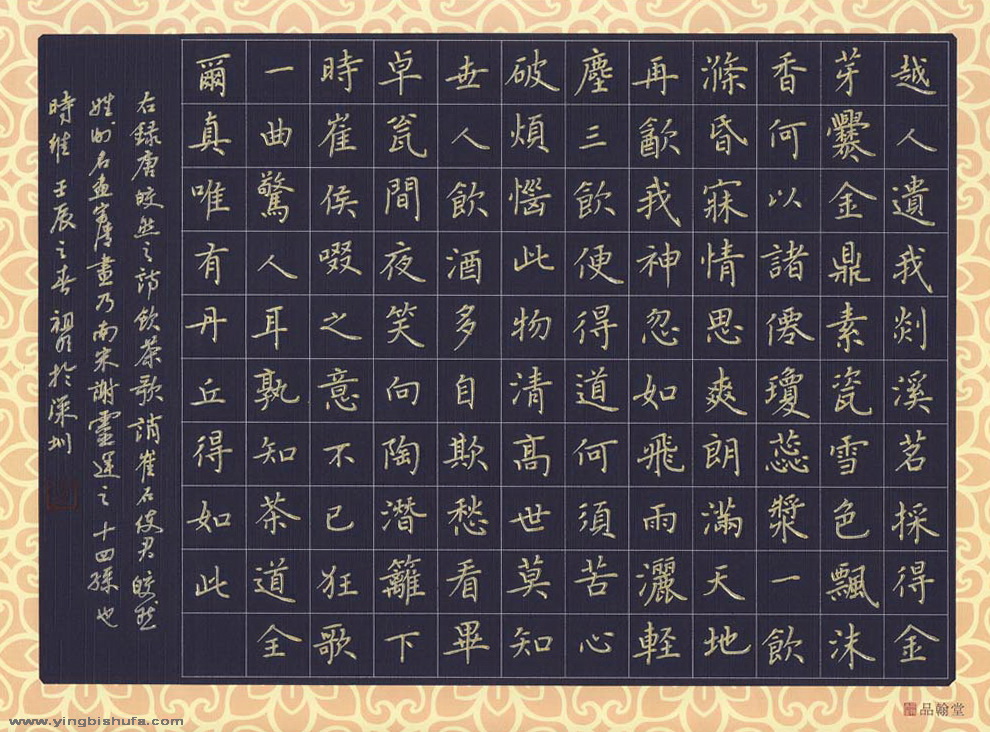 越人遺我剡溪茗採得金
芽爨金鼎素瓷雪色飄沫
香何以諸僊瓊蕊漿一飲
滌昏寐情思爽朗滿天地
再我神忽如飛雨灑軽
塵三飲便得道何須苦心
破煩惱此物清高世莫知
世人飲酒多自欺愁看畢
卓瓮間夜笑向陶潛籬下
時崔侯啜之意不已狂歌
一曲驚人耳孰知茶道全
爾真唯有丹丘得如此
右録唐皎然之詩飲茶歌誚崔石使君皎然
姓名字清晝乃南宋謝靈運之十四孫也
時維壬辰之春於深圳
www.yingbishufa.com
品翰堂